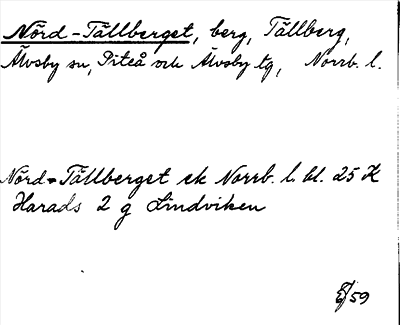 Nörd-Tällberget, berg, Tällberg,
Älvsby sn, Piteå och Älvsby tg, Norrb. l.
Nörd-Tällberget ek Norrb. l. bl. 25 K
Harads 2 g Lindviken
59